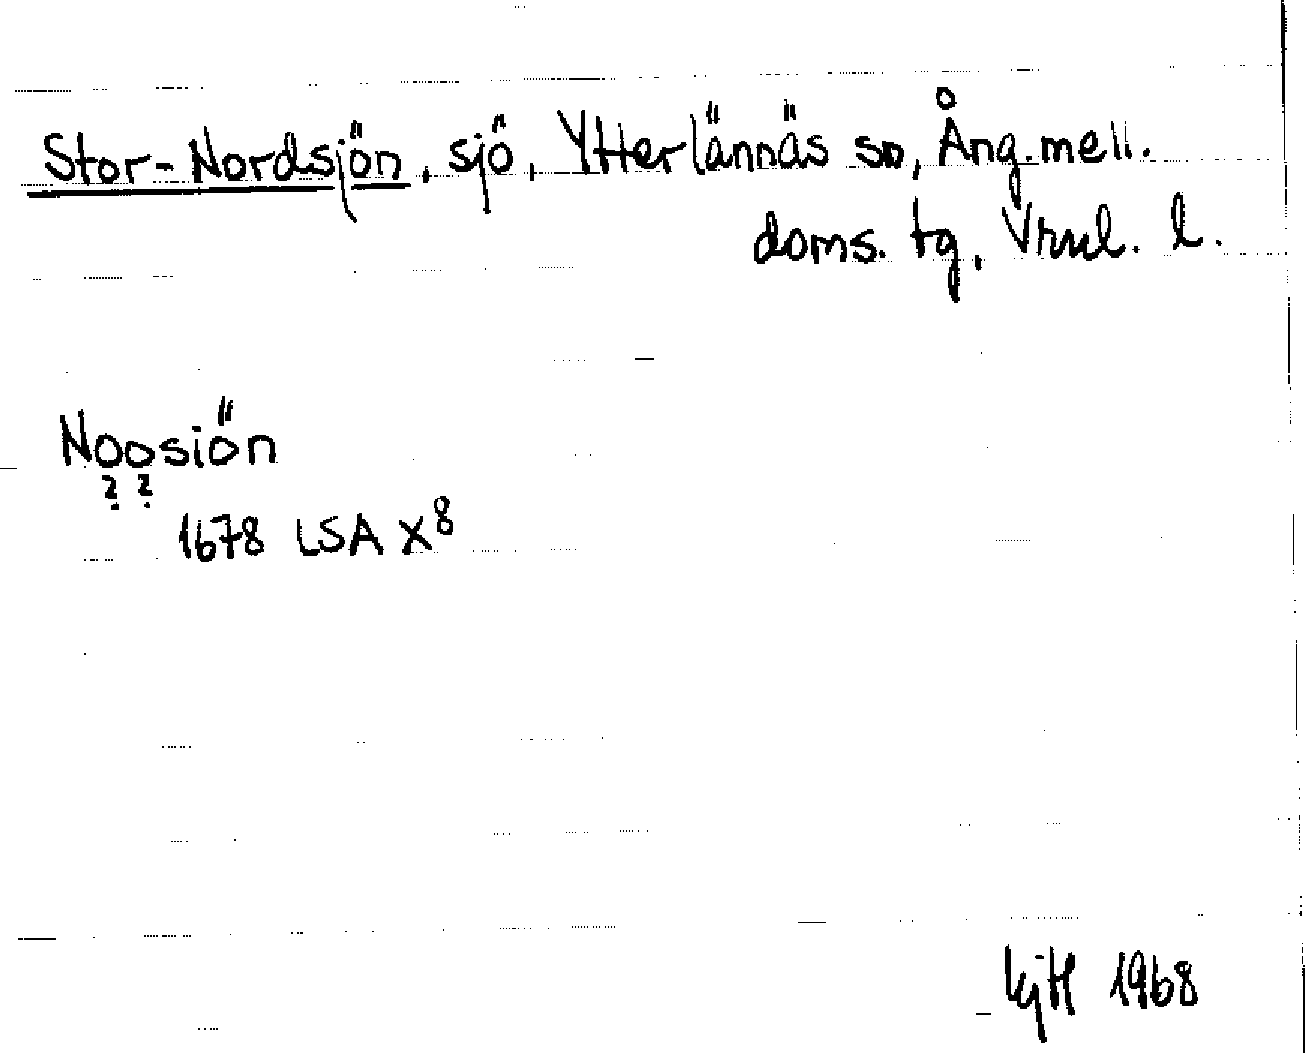 Stor-Nordsjön, sjö, Ytterlännäs sn, Ång. mell.
doms. tg, Vrnl. l.
Noosiön
? ?
1678 LSA X8
1968